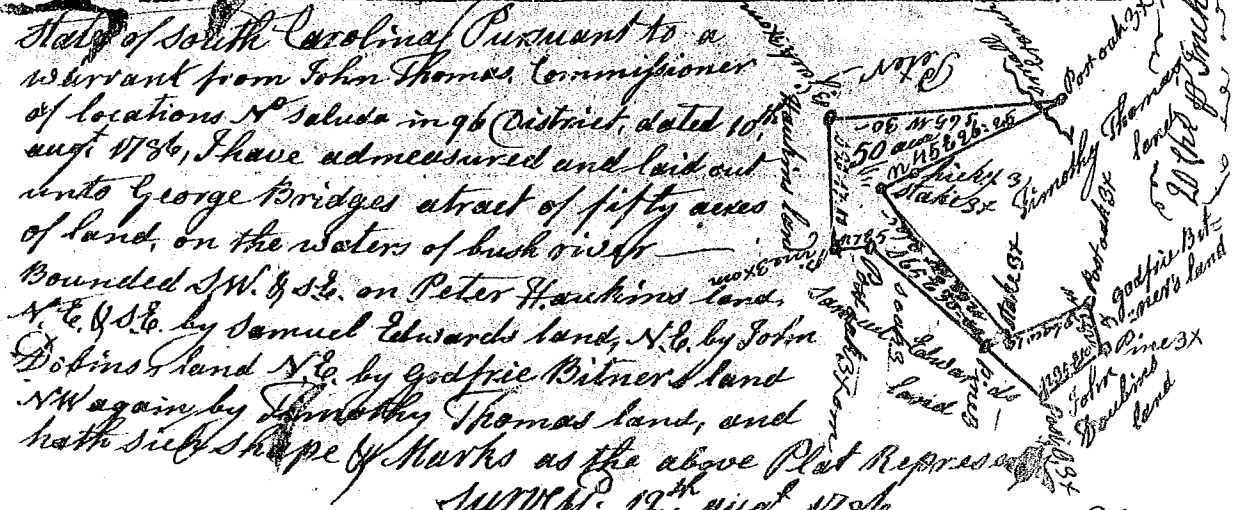 State of South Carolina Pursuant to a
warrant from John Thomas Commissioner
of locations No Saluda in 96 District, dated 10th
augt 1786, I have admeasured and laid out
unto George Bridges a tract of fifty acres
of land, on the waters of bush river
Bounded SW. & SE. on Peter Hawkins land,
N.E. & SE. by Samuel Edwards land, N.E. by John
Dokins land N.E. by Godfrie Bitners land
NW again by Timothy Thomas land, and
hath such shape & Marks as the above Plat Represe
12th augt 1786
Peter
Hawkins land
50 acres
Post oak 3x
hicky 3
stake 3x
Timothy Thomas
land
Post oak 3x
Stake 3x
godfrie Bit-
ner's land
Pine 3x
John
Daukins
land
Pine 3
Edwards
land
20 Chs pr Inch